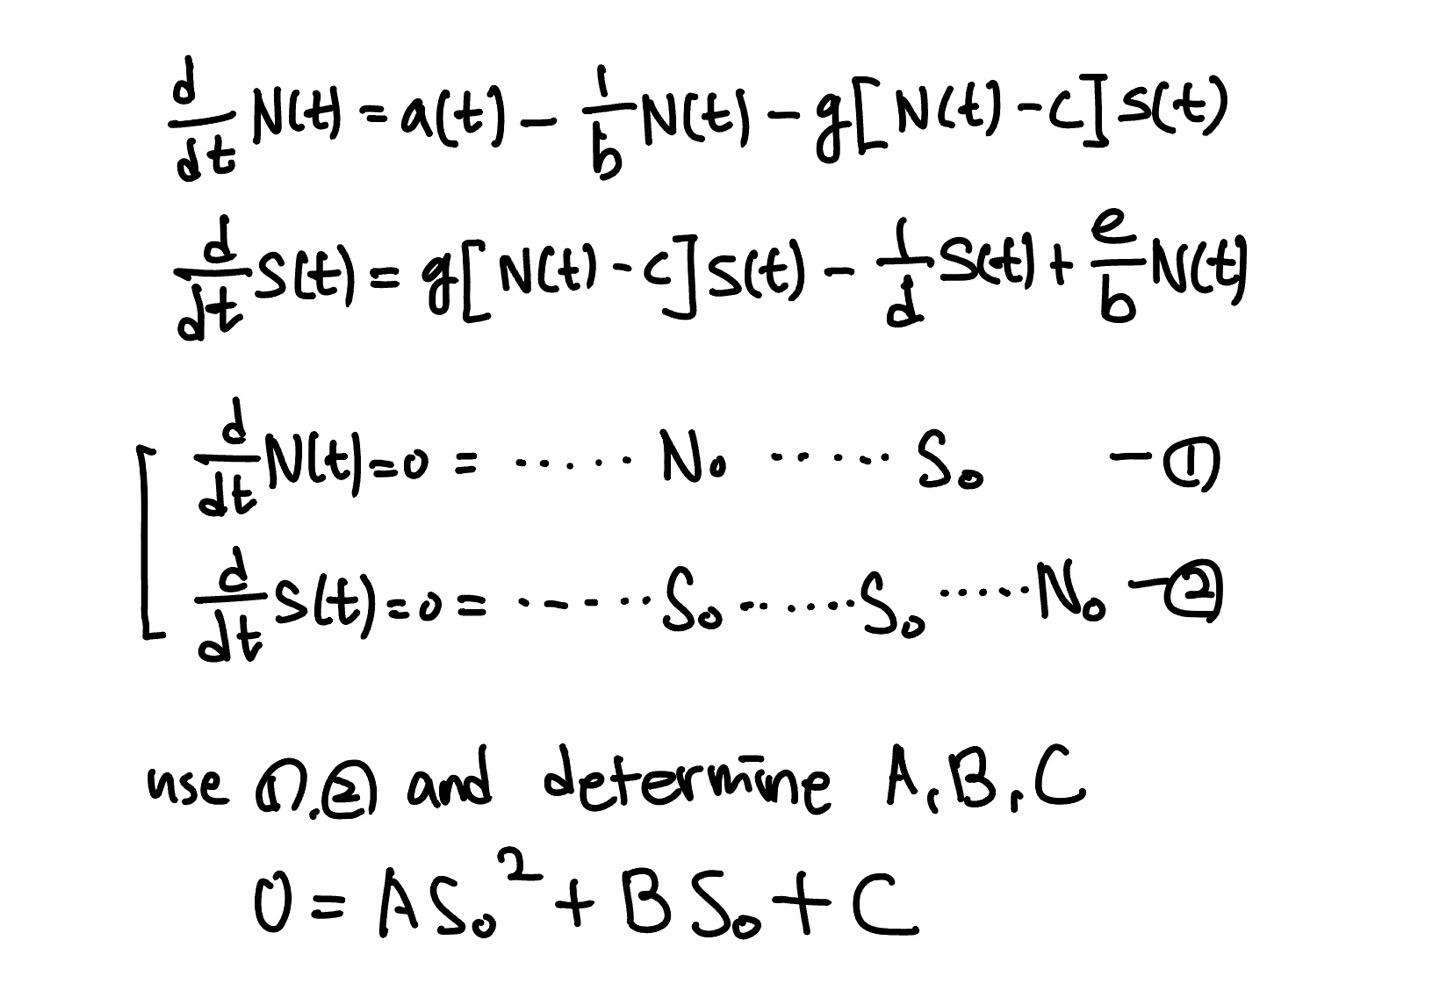 d/dt N(t) = a(t) - 1/b N(t) - g[N(t) - c]S(t)
d/dt S(t) = g[N(t) - c]S(t) - 1/d S(t) + e/b N(t)
d/dt N(t) = 0 = ..... N₀ ..... S₀ - ①
d/dt S(t) = 0 = ...... S₀ ...... S₀ ..... N₀ - ②
use ①.② and determine A, B, C
0 = AS₀² + BS₀ + C